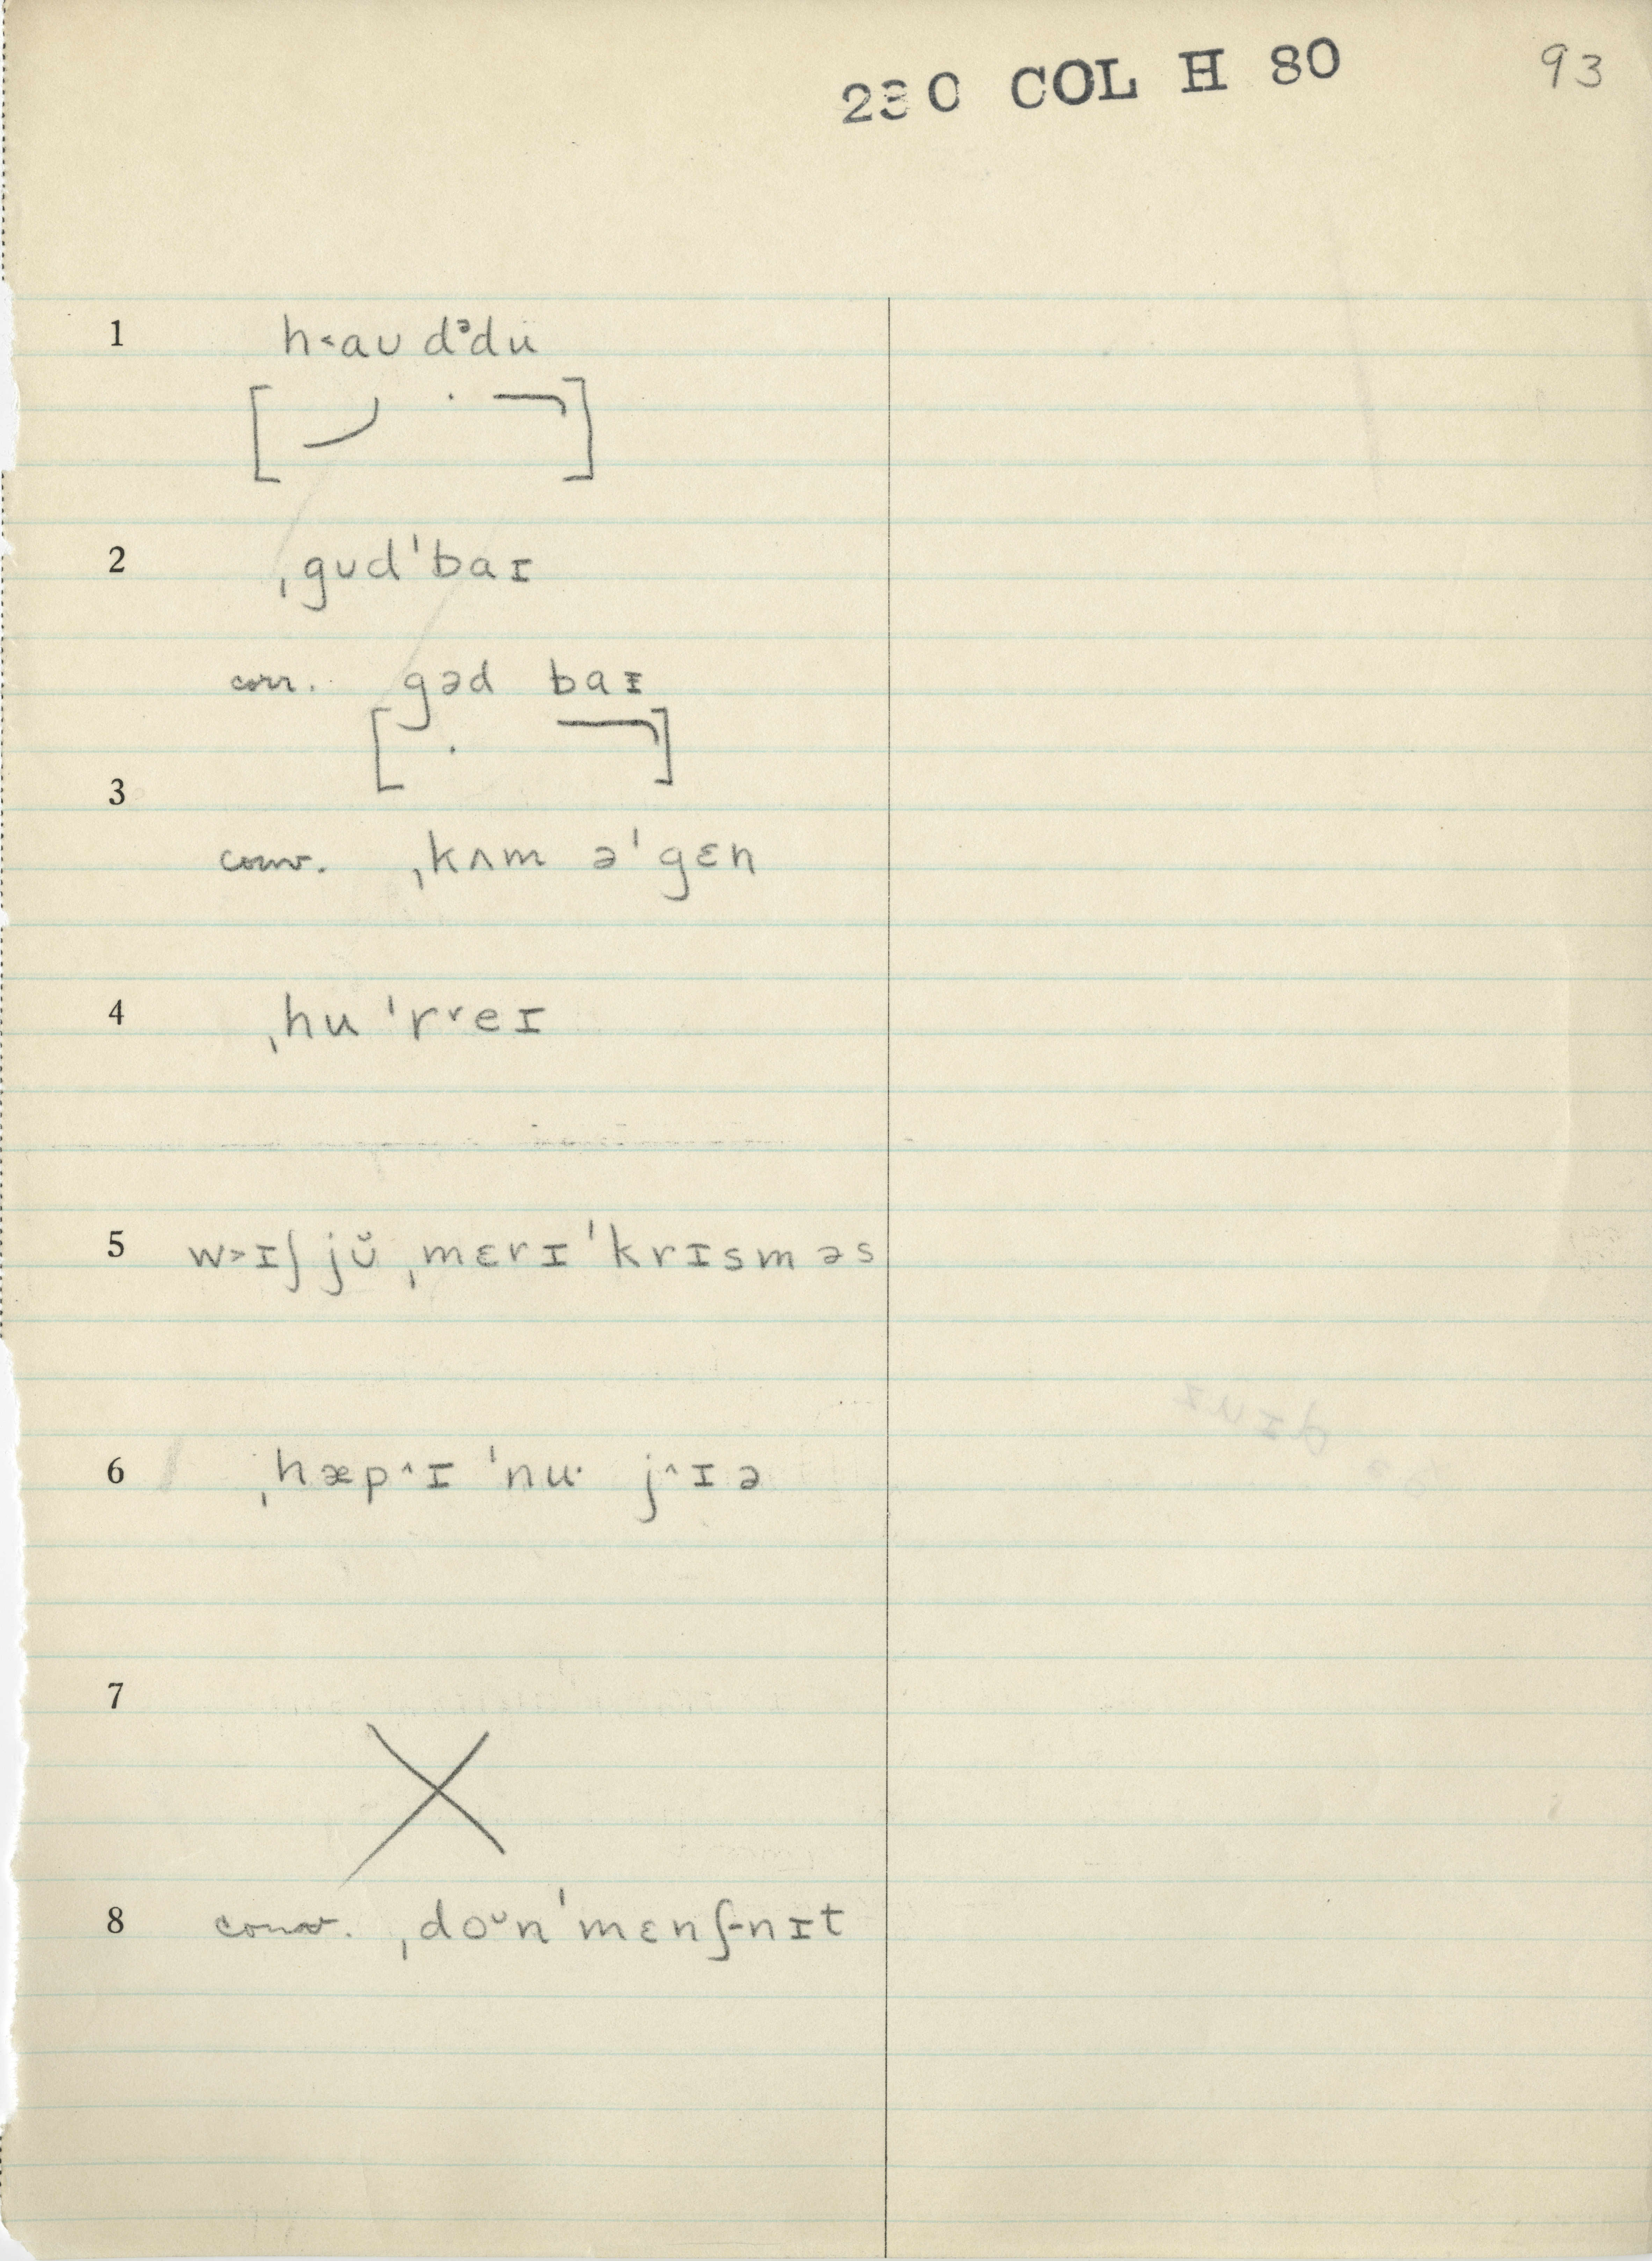 230 COL H 80 93
1 h˂aʊ dᵊdü
2 ˌgʊdˈbaɪ
corr. gəd baɪ
3
conv. ˌkʌm əˈgɛn
4 ˌhuˈr˅eɪ
5 w˃ɪʃ jʊ̆ ˌmɛrɪˈkrɪsməs
6 ˌhæp˄ɪ ˈnu· j˄ɪə
7
8 conv. ˌdoᵕnˈmɛnʃnɪt